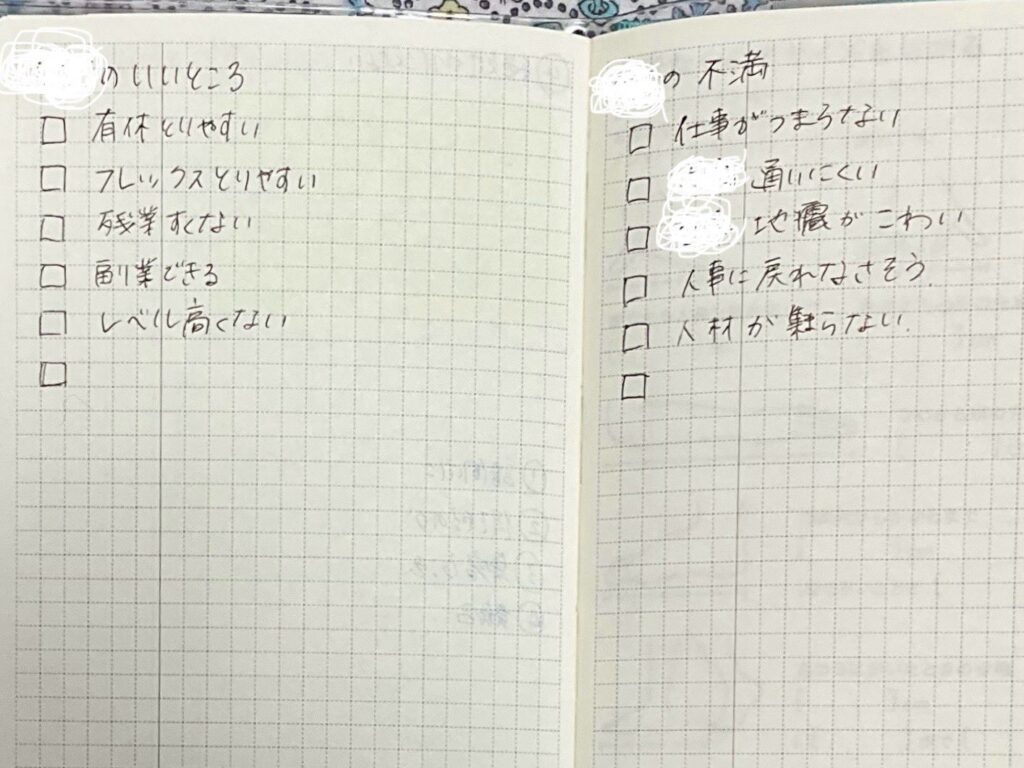 のいいところ
有休とりやすい
フレックスとりやすい
残業すくない
副業できる
レベル高くない
の不満
仕事がつまらない
通いにくい
地震がこわい
人事に戻れなさそう.
人材が集まらない.